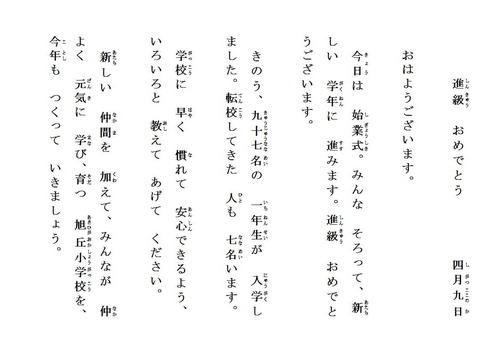 進級 おめでとう 四月九日
おはようございます。
今日は 始業式。みんな そろって、新
しい 学年に 進みます。進級 おめでと
うございます。
きのう、九十七名の 一年生が 入学し
ました。転校してきた 人も 七名います。
学校に 早く 慣れて 安心できるよう、
いろいろと 教えて あげて ください。
新しい 仲間を 加えて、みんなが 仲
よく 元気に 学び、育つ 旭丘小学校を、
今年も つくって いきましょう。